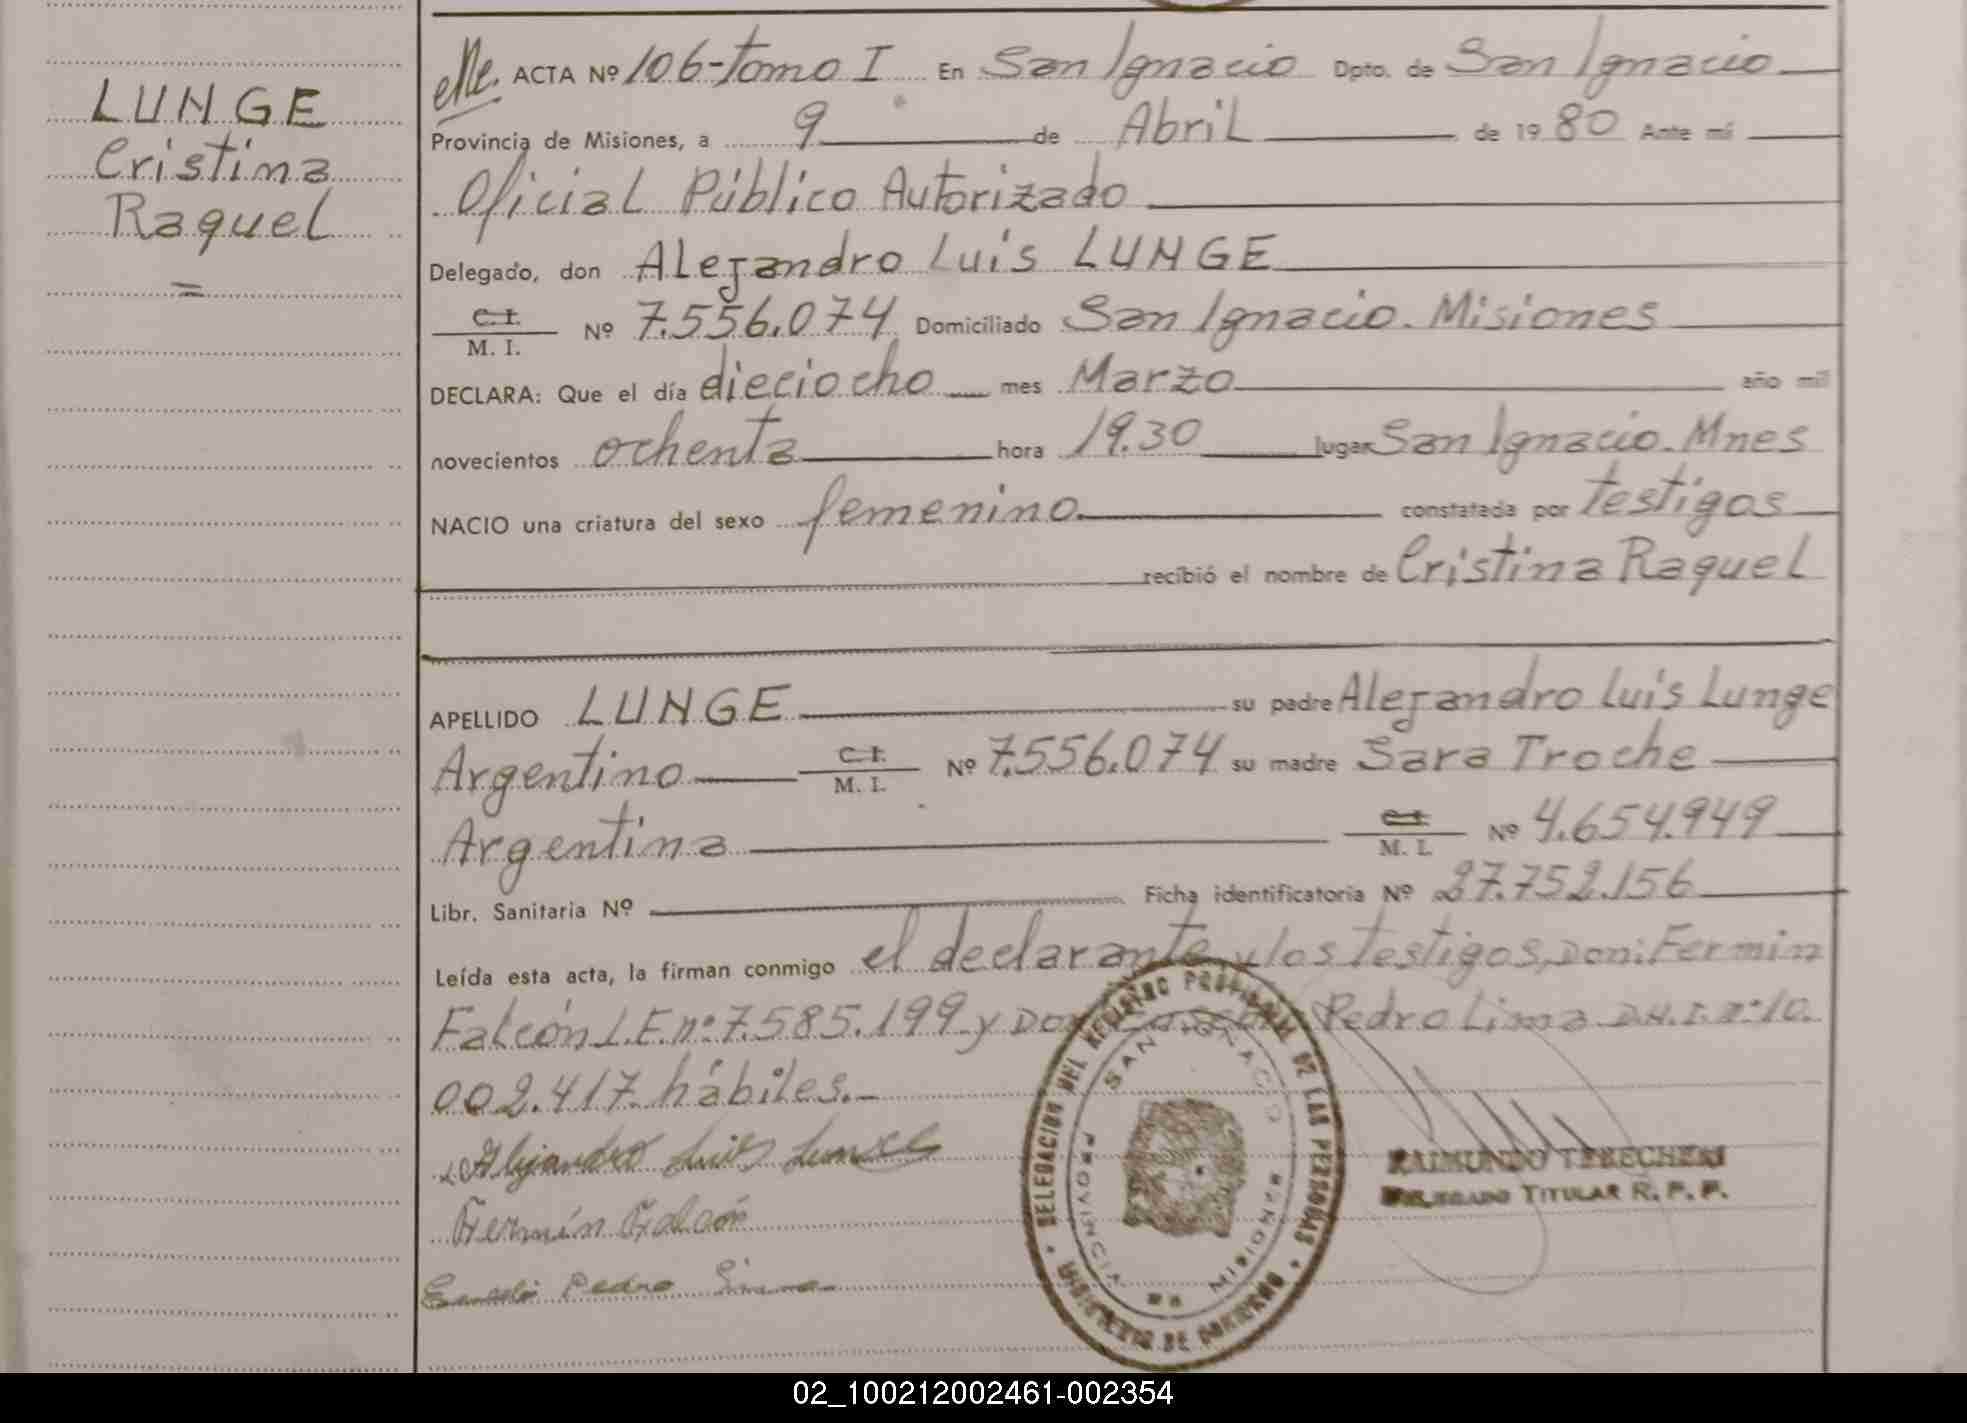 LUNGE
Cristina
Raquel
=
ACTA Nº 106-Tomo I En San Ignacio Dpto. de San Ignacio
Provincia de Misiones, a 9 de Abril de 1980 Ante mí
Oficial Público Autorizado
Delegado, don Alejandro Luis LUNGE
C.I. M. I. Nº 7.556.074 Domiciliado San Ignacio. Misiones
DECLARA: Que el día dieciocho mes Marzo año mil
novecientos ochenta hora 19.30 lugar San Ignacio. Mnes
NACIO una criatura del sexo femenino. constatada por testigos
recibió el nombre de Cristina Raquel
APELLIDO LUNGE su padre Alejandro Luis Lunge
Argentino C.I. M. I. Nº 7.556.074 su madre Sara Troche
Argentina C.I. M. I. Nº 4.654.949
Libr. Sanitaria Nº Ficha identificatoria Nº 27.752.156
Leída esta acta, la firman conmigo el declarante y los testigos, Don: Fermin
Falcón L.E.nº: 7.585.199 y Don Pedro Lima D.N.I. nº 10.
002.417. hábiles.-
Alejandro Luis Lunge
Fermín Falcón
Pedro Lima
DELEGACION DEL REGISTRO PROVINCIAL DE LAS PERSONAS
MINISTERIO DE GOBIERNO
SAN IGNACIO
PROVINCIA DE MISIONES
RAIMUNDO TERECHERI
DELEGADO TITULAR R. P. P.
02_100212002461-002354